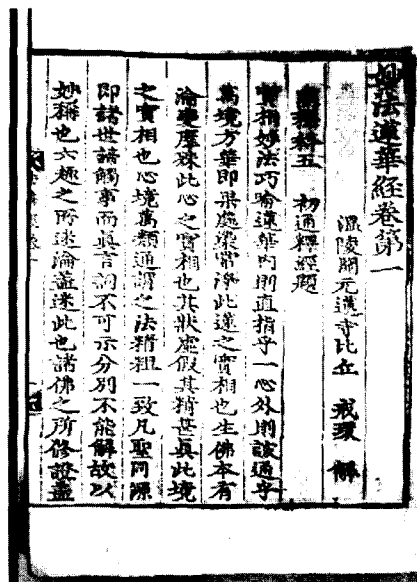 妙法蓮華經卷第一
溫陵開元蓮寺比丘 戒環 解
科五 初通釋經題
實相妙法巧喻蓮華內則直指乎一心外則該通乎
萬境方華即果處染常淨此蓮之實相也生佛本有
淪變靡殊此心之實相也其狀虛假其精甚真此境
之實相也心境萬類通謂之法精粗一致凡聖同源
即諸世諦觸事而真言詞不可示分別不能解故以
妙稱也六趣之所迷淪蓋迷此也諸佛之所修證盖